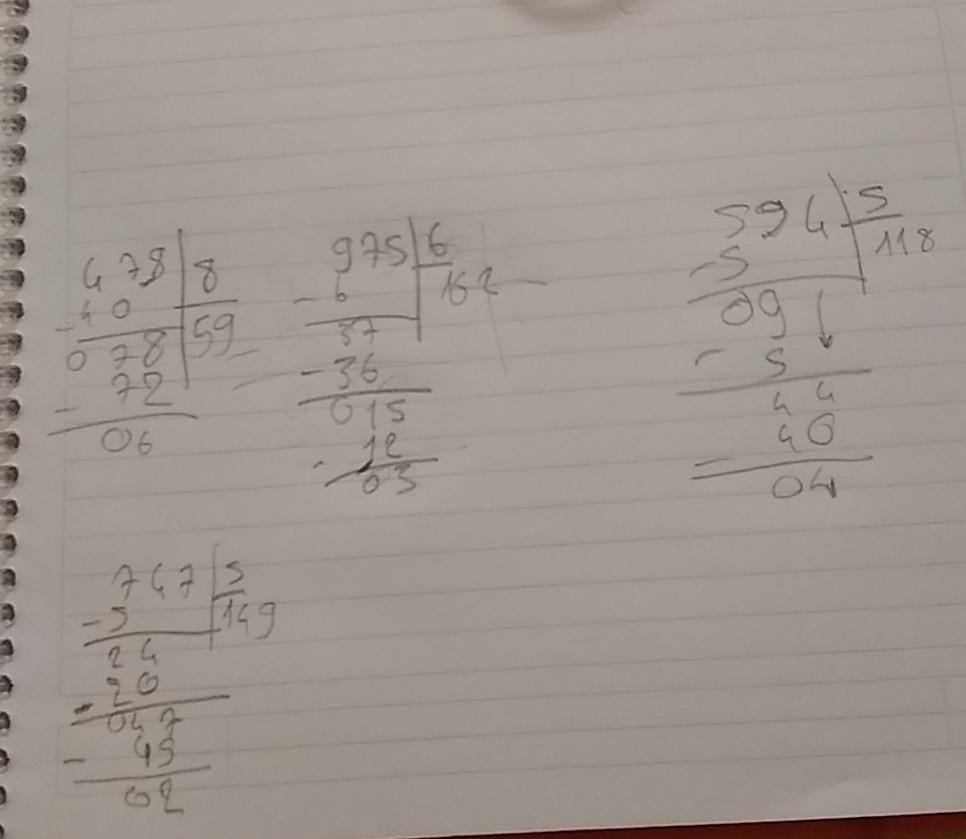 478 8
-40 59
078
- 72
06
975 6
-6 162
37
-36
015
- 12
03
594 5
-5 118
09
- 5
44
- 40
04
747 5
-5 149
24
-20
047
- 45
02